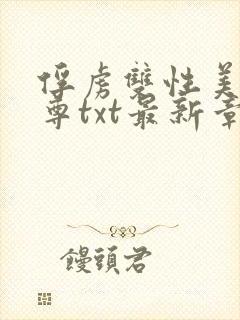 俘虏雙性美
尊txt最新章
饅頭君